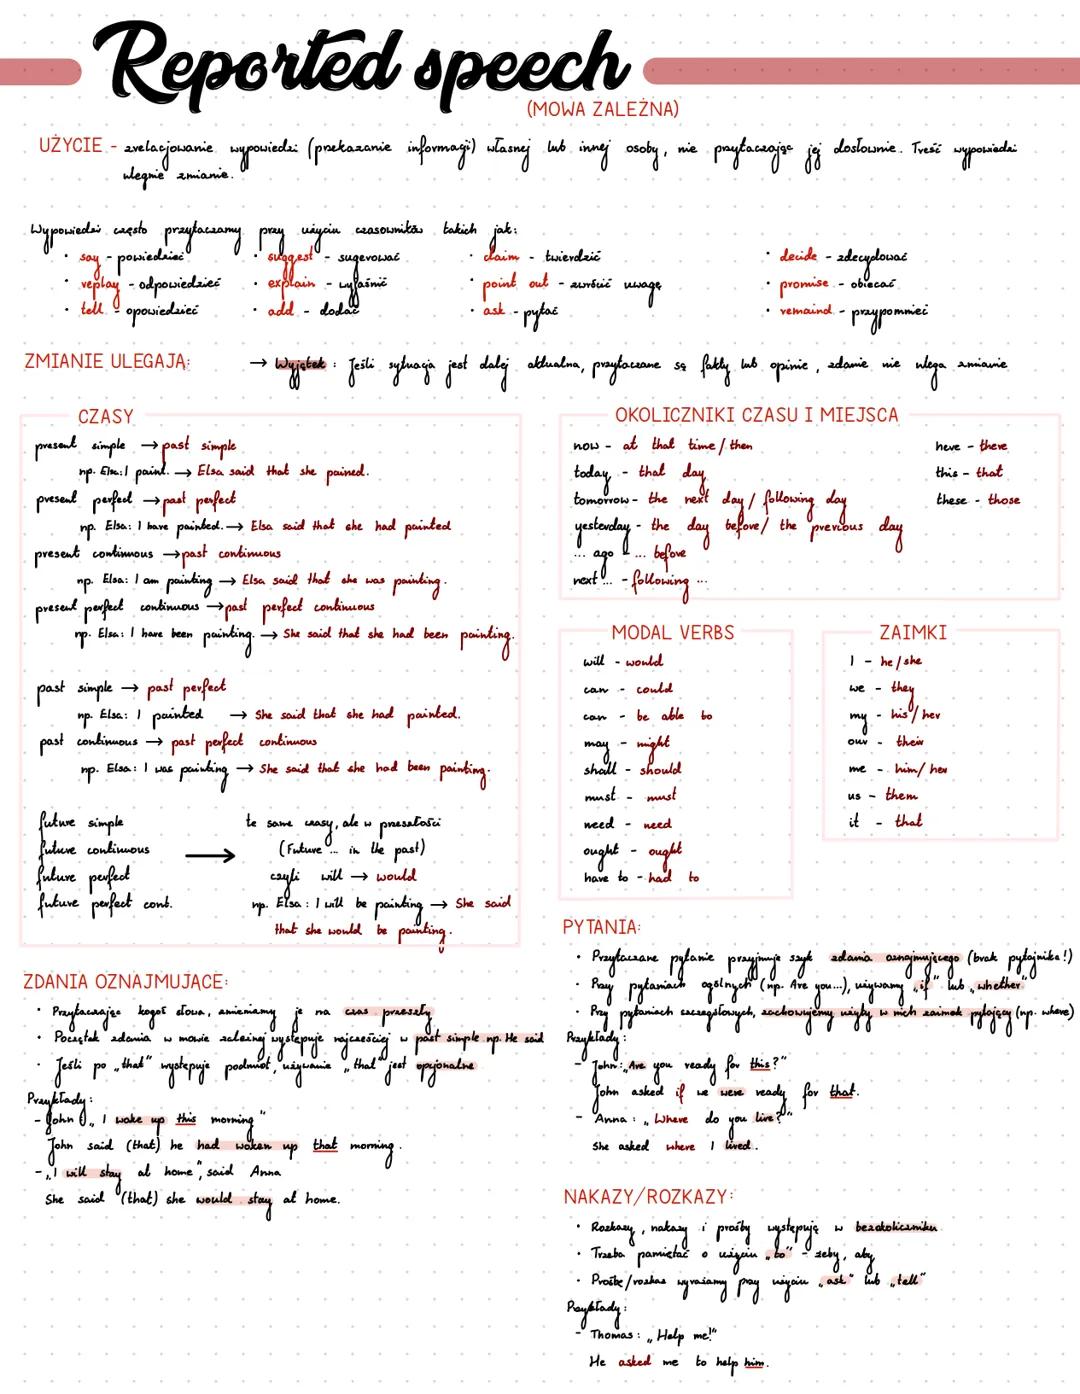 Reported speech
(MOWA ZALEŻNA)
UŻYCIE - zrelacjonowanie wypowiedzi (przekazanie informacji) własnej lub innej osoby, nie przytaczając jej dosłownie. Treść wypowiedzi
ulegnie zmianie.
Wypowiedzi często przytaczamy przy użyciu czasowników takich jak:
• say - powiedzieć • suggest - sugerować • claim - twierdzić • decide - zdecydować
• replay - odpowiedzieć • explain - wyjaśnić • point out - zwrócić uwagę • promise - obiecać
• tell - opowiedzieć • add - dodać • ask - pytać • remaind - przypomnieć
ZMIANIE ULEGAJĄ: → Wyjątek : Jeśli sytuacja jest dalej aktualna, przytaczane są fakty lub opinie, zdanie nie ulega zmianie
CZASY
present simple → past simple
np. Elsa: I paint. → Elsa said that she pained.
present perfect → past perfect
np. Elsa: I have painted. → Elsa said that she had painted
present continuous → past continuous
np. Elsa: I am painting → Elsa said that she was painting.
present perfect continuous → past perfect continuous
np. Elsa: I have been painting. → She said that she had been painting.
past simple → past perfect
np. Elsa: I painted → She said that she had painted.
past continuous → past perfect continuous
np. Elsa: I was painting → She said that she had been painting.
future simple te same czasy, ale w przeszłości
future continuous → (Future ... in the past)
future perfect czyli will → would
future perfect cont. np. Elsa: I will be painting → She said
that she would be painting.
OKOLICZNIKI CZASU I MIEJSCA
now - at that time/then here - there
today - that day this - that
tomorrow - the next day / following day these - those
yesterday - the day before/ the prevcous day
... ago - ... before
next ... - following ...
MODAL VERBS
will - would
can - could
can - be able to
may - might
shall - should
must - must
need - need
ought - ought
have to - had to
ZAIMKI
I - he/she
we - they
my - his/her
our - their
me - him/her
us - them
it - that
ZDANIA OZNAJMUJĄCE:
• Przytaczając kogoś słowa, zmieniamy je na czas przeszły
• Początek zdania w mowie zależnej występuje najczęściej w past simple np. He said
• Jeśli po „that" występuje podmiot, używanie „that" jest opcjonalne
Przykłady:
- John: „I woke up this morning"
John said (that) he had woken up that morning.
- „I will stay at home", said Anna
She said (that) she would stay at home.
PYTANIA:
• Przytaczane pytanie przyjmuje szyk zdania oznajmującego (brak pytajnika!)
• Przy pytaniach ogólnych (np. Are you...), używamy „if" lub „whether"
• Przy pytaniach szczegółowych, zachowujemy użyty w nich zaimek pytający (np. where)
Przykłady:
- John: „Are you ready for this?"
John asked if we were ready for that.
- Anna: „Where do you live?"
She asked where I lived.
NAKAZY/ROZKAZY:
• Rozkazy, nakazy i prośby występują w bezokoliczniku
• Trzeba pamiętać o użyciu „to" - żeby, aby
• Prośbę/rozkaz wyrażamy przy użyciu „ask" lub „tell"
Przykłady:
- Thomas: „Help me!"
He asked me to help him.